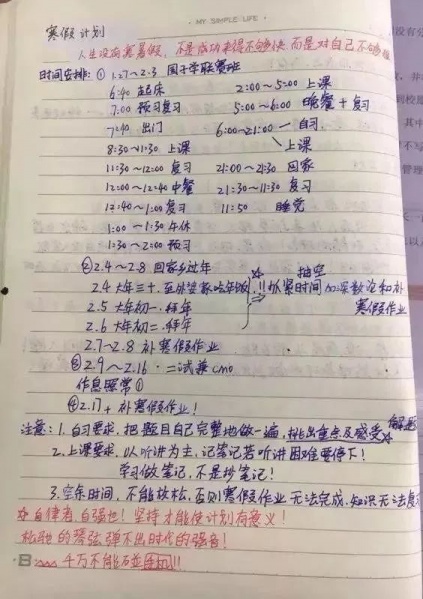 · MY SIMPLE LIFE ·
寒假计划
人生没有寒暑假，不是成功来得不够快，而是对自己不够狠
时间安排：① 1.27～2.3 国子学联赛班
6:40 起床 2:00～5:00 上课
7:00 预习复习 5:00～6:00 晚餐+复习
7:40 出门 6:00～21:00 自习
8:30～11:30 上课 上课
11:30～12:00 复习 21:00～21:30 回家
12:00～12:40 中餐 21:30～11:30 复习
12:40～1:00 复习 11:50 睡觉
1:00～1:30 午休
1:30～2:00 预习
②2.4～2.8 回家乡过年 抽空
2.4 大年三十，至外公家吃年饭 !!抓紧时间加深数论和补
2.5 大年初一，拜年 寒假作业
2.6 大年初二，拜年
2.7～2.8 补寒假作业
③2.9～2.16 · 二试兼cmo
作息照常①
④2.17+ 补寒假作业！
注意：1.自习要求，把题目自己完整地做一遍，挑出重点及感受 解题
2.上课要求，以听讲为主，记笔记若听讲困难要停下！
学习做笔记，不是抄笔记！
3.空余时间，不能放松，否则寒假作业无法完成，知识无法复
自律者，自强也！坚持才能使计划有意义！
松弛的琴弦弹不出时代的强音！
千万不能

8